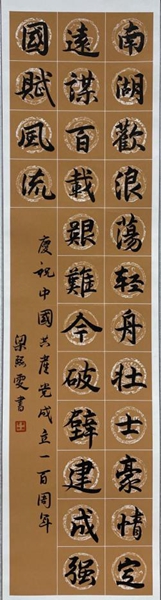 南湖歡浪蕩轻舟壮士豪情定
遠謀百載艱難今破壁建成强
國賦風流
慶祝中國共産党成立一百周年
梁 雯書